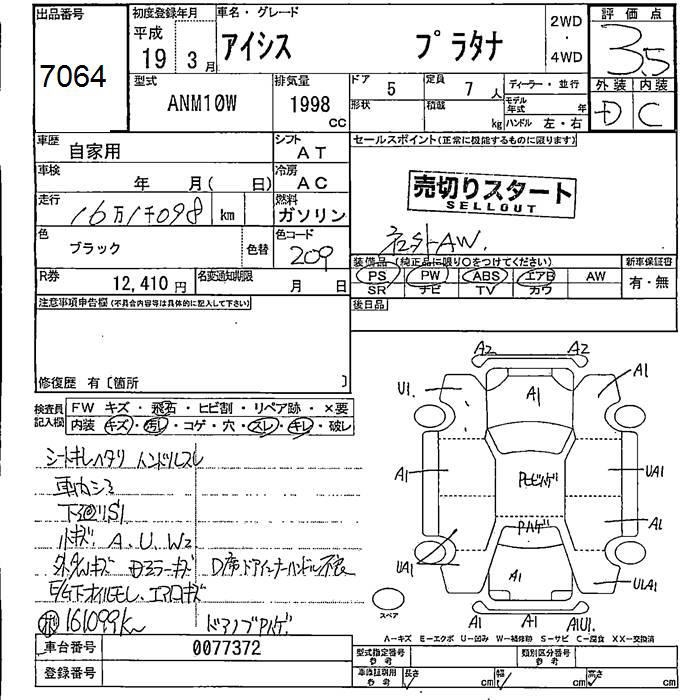 出品番号
7064
初度登録年月
平成
19 3月
車名・グレード
アイシス プラタナ
2WD
・
4WD
評価点
3.5
外装 内装
D C
型式
ANM10W
排気量
1998
cc
ドア 5
定員 7人
ディーラー・並行
形状
積載 kg
モデル年式 年
ハンドル 左・右
車歴
自家用
シフト
AT
車検
年 月( 日)
冷房
AC
走行
16万1千098 km
燃料
ガソリン
色
ブラック
色替
色コード
209
R券
12,410円
名変通知期限
月 日
セールスポイント(正常に機能するものに限ります)
売切りスタート
SELLOUT
社外AW.
装備品 (純正品に限り○をつけてください)
新車保証書
PS PW ABS エアB AW
SR ナビ TV カワ
有・無
後日品
注意事項申告欄(不具合内容等は具体的に記入して下さい)
修復歴 有〔箇所 〕
検査員
記入欄
FW キズ・飛石・ヒビ割・リペア跡・×要
内装 キズ・汚レ・コゲ・穴・スレ・キレ・破レ
シートキレヘタリ ハンドルスレ
下廻りS1
小キズ A、U、W2
D席ドアインナーハンドル不良
161099km
ドアノブPハゲ
車台番号
0077372
登録番号
A2 A2
U1 A1 A1
A1 PモヒハゲUA1
Pハゲ A1
UA1 A1 U1A1
A1 A1 A1U1
スペア
A−キズ E−エクボ U−凹み W−補修跡 S−サビ C−腐食 XX−交換済
型式指定番号
参考
類別区分番号
参考
車庫証明用
参考
長さ cm
幅 cm
高さ cm